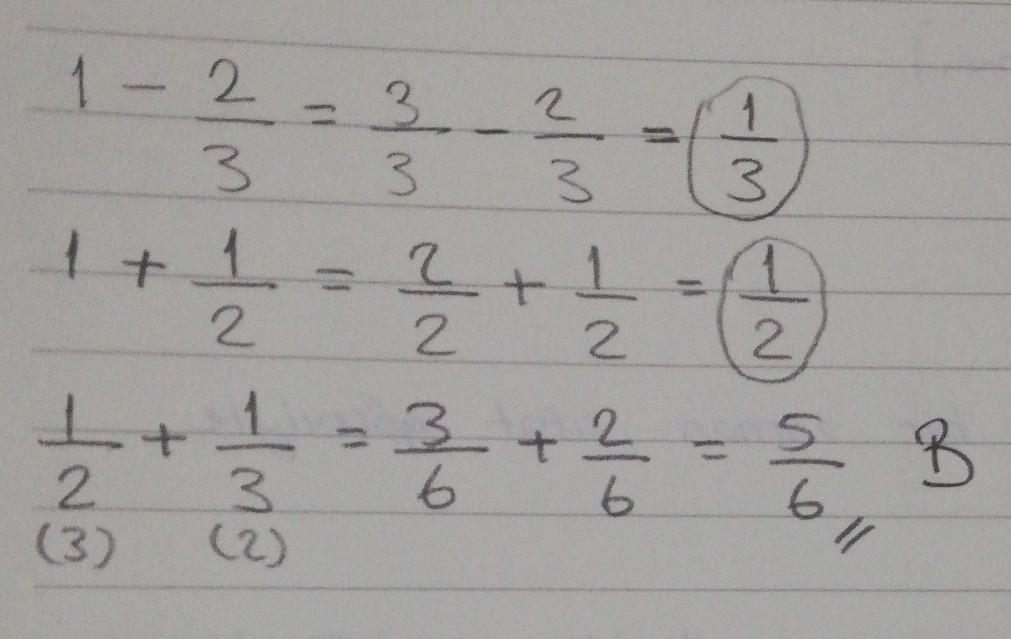 1 - 2/3 = 3/3 - 2/3 = 1/3
1 + 1/2 = 2/2 + 1/2 = 1/2
1/2 + 1/3 = 3/6 + 2/6 = 5/6 // B
(3) (2)